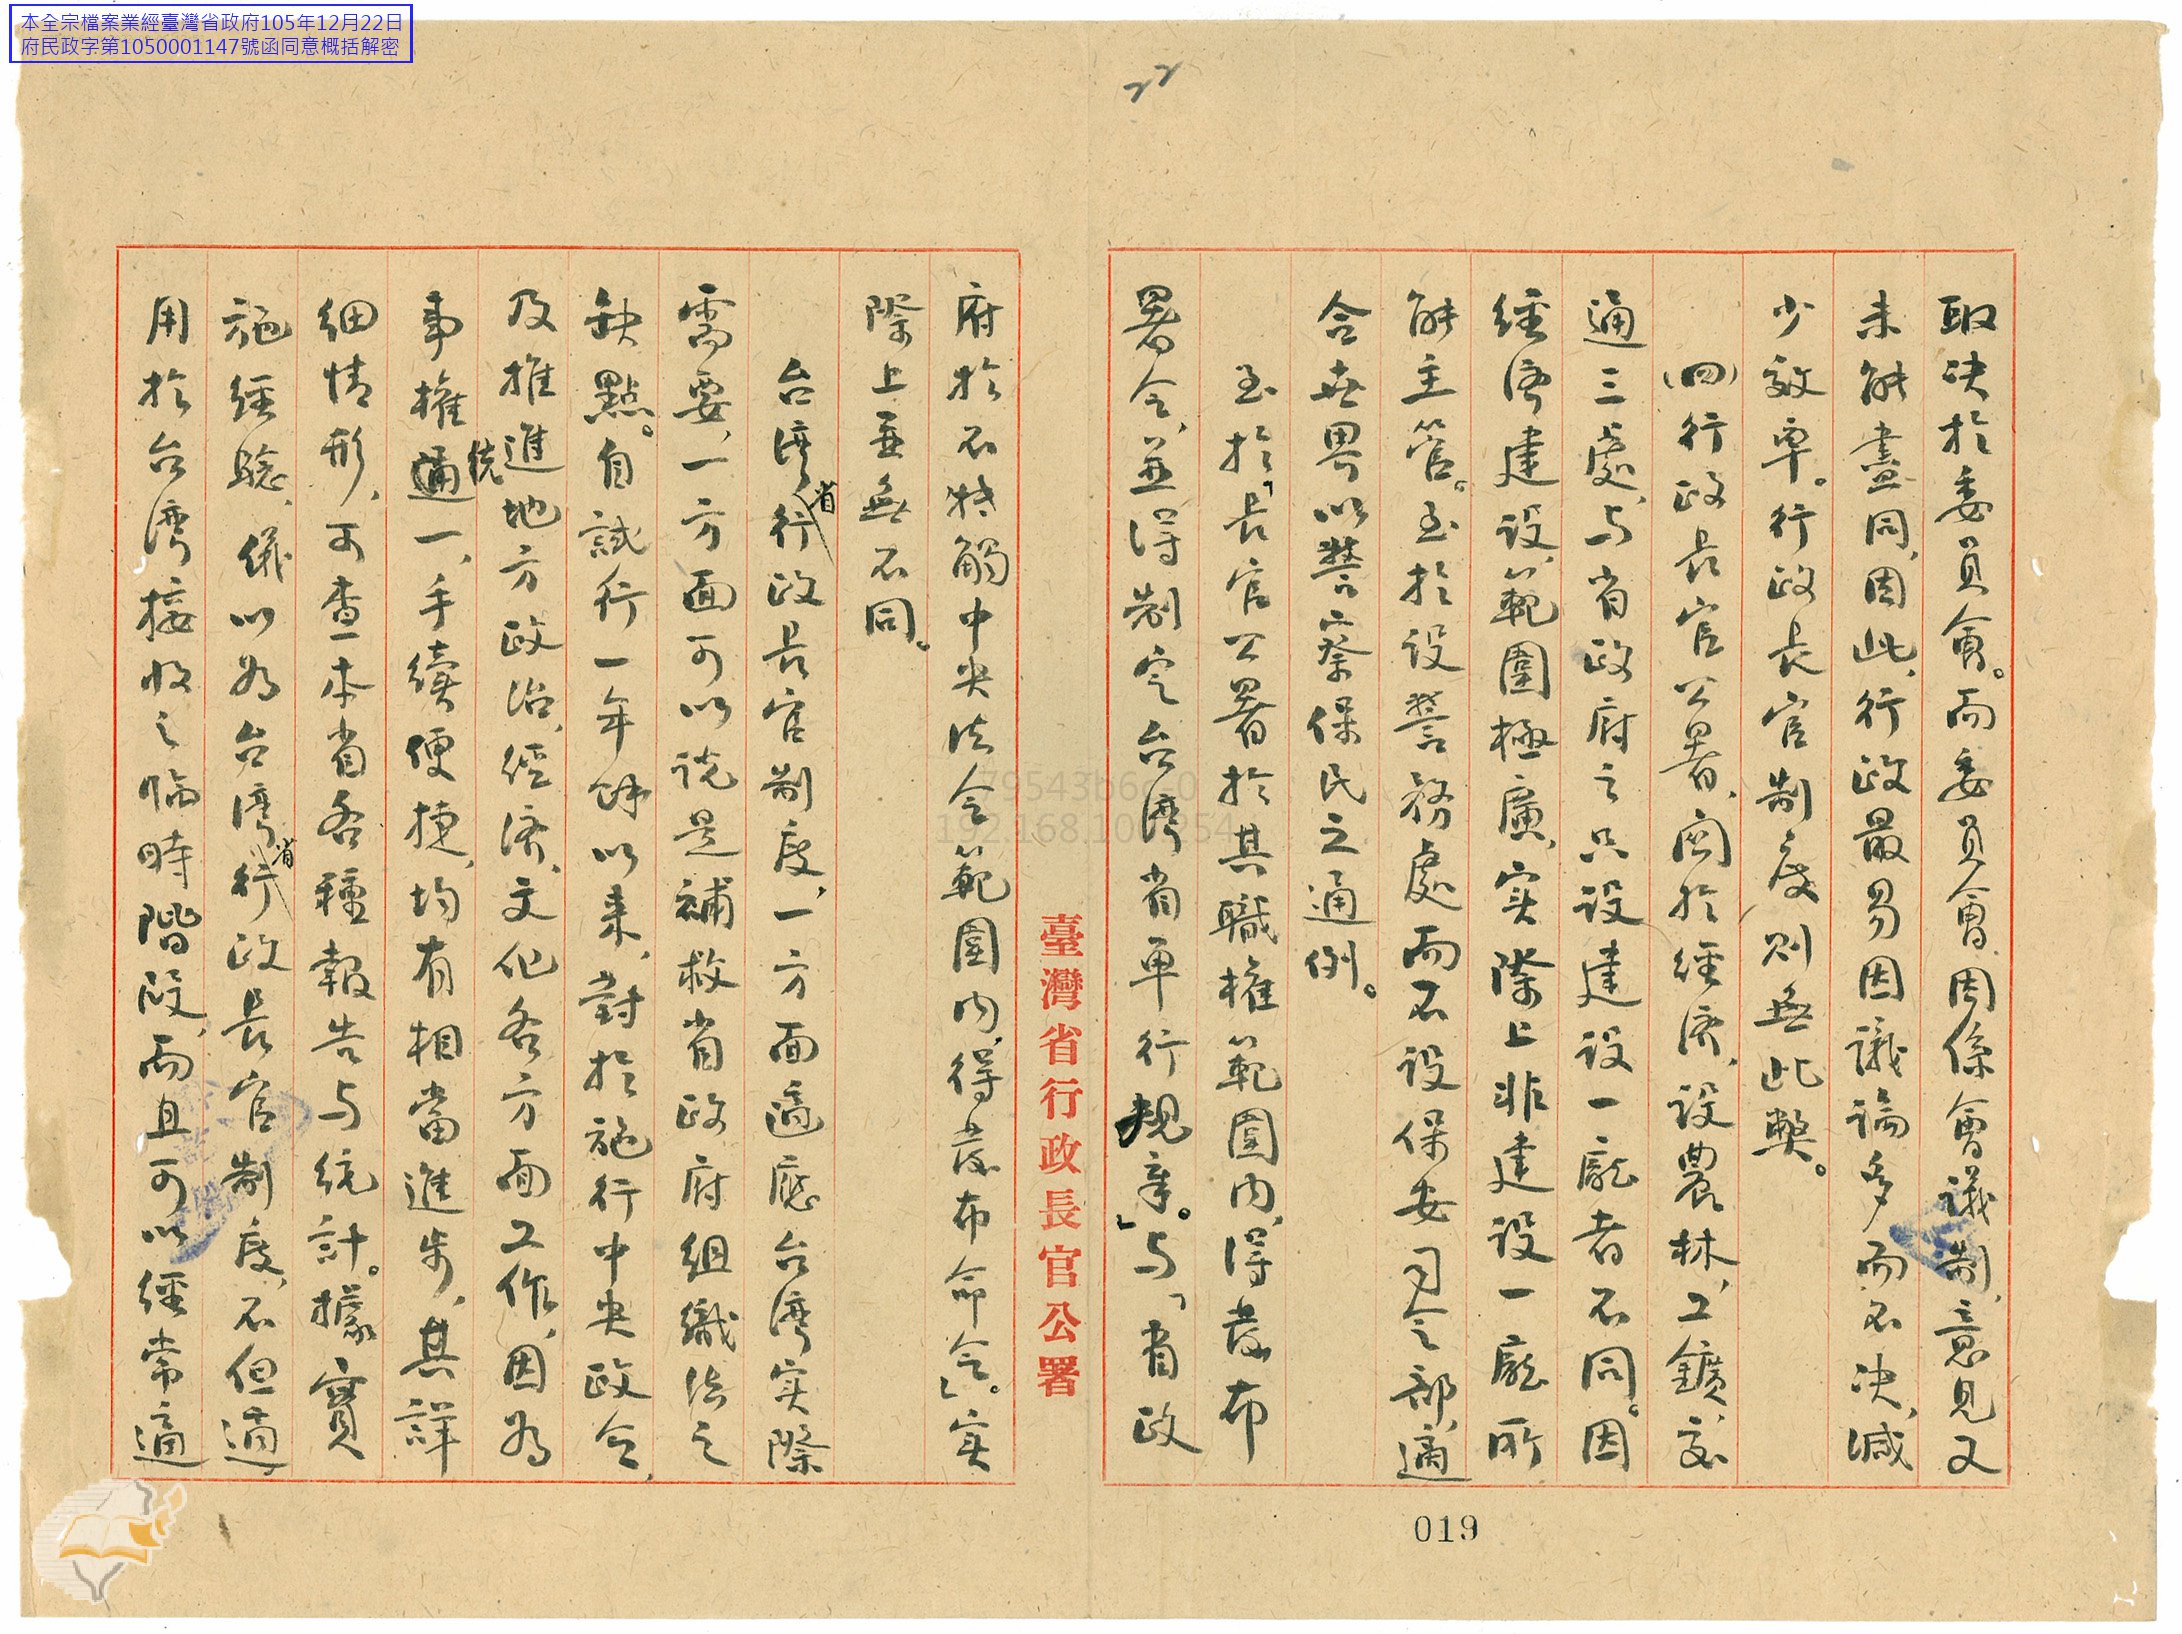 本全宗檔案業經臺灣省政府105年12月22日
府民政字第1050001147號函同意概括解密
22
取决於委員會。而委員會,因係會議制,意見又
未能盡同,因此,行政最易因議論多而不决,減
少效率。行政长官制度則無此弊。
(四)行政长官公署,関於經濟,設農林、工鑛、交
通三處,与省政府之只設建設一廳者不同。因
經濟建設,範圍極廣,实際上非建設一廳所
能主管。至於設警務處而不設保安司令部,適
合世界以警察保民之通例。
至於「长官公署於其職權範圍内,得發布
署令,並得制定台湾省单行規章。」与「省政
臺灣省行政長官公署
府於不牴觸中央法令範圍内,得發布命令」。实
際上並無不同。
台湾省行政长官制度,一方面適應台湾实際
需要,一方面可以说是補救省政府組織法之
缺點。自試行一年餘以来,對於施行中央政令,
及推進地方政治、經济、文化各方面工作,因为
事權統一,手續便捷,均有相當進步,其詳
細情形,可查本省各種報告与統計。據實
施經驗,僉以为台湾省行政长官制度,不但適
用於台湾接收之臨時階段,而且可以經常適
019